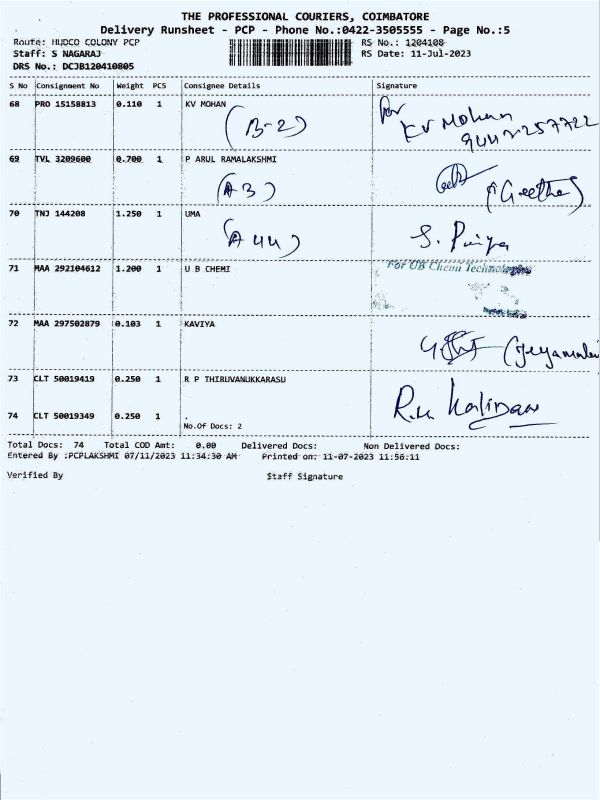 THE PROFESSIONAL COURIERS, COIMBATORE
Delivery Runsheet - PCP - Phone No.:0422-3505555 - Page No.:5
Route: HUDCO COLONY PCP RS No.: 1204108
Staff: S NAGARAJ RS Date: 11-Jul-2023
DRS No.: DCJB120410805
S No Consignment No Weight PCS Consignee Details Signature
68 PRO 15158813 0.110 1 KV MOHAN
(B-2) for KV Mohan
69 TVL 3209600 0.700 1 P ARUL RAMALAKSHMI
(A3) (Geetha)
70 TNJ 144208 1.250 1 UMA
(A44) S. Priya
71 MAA 292104612 1.200 1 U B CHEMI For UB Chemi Technologies
72 MAA 297502879 0.103 1 KAVIYA
73 CLT 50019419 0.250 1 R P THIRUVANUKKARASU
74 CLT 50019349 0.250 1 .
No.Of Docs: 2
Total Docs: 74 Total COD Amt: 0.00 Delivered Docs: Non Delivered Docs:
Entered By :PCPLAKSHMI 07/11/2023 11:34:30 AM Printed on: 11-07-2023 11:56:11
Verified By Staff Signature